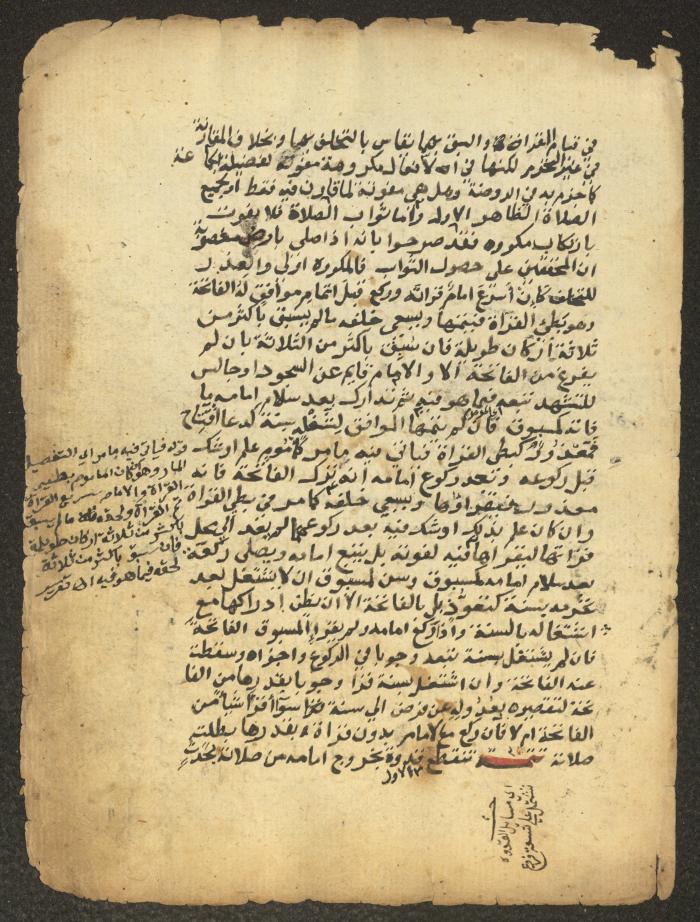 في قيام القراءة والسبق بهما يقاس بالتخلف بهما وبخلاف المقارنة
في غير التحرم لكنها في الافعال مكروهة مفوتة لفضيلة الجماعة
كما جزم به في الروضة وهل هي مفوتة لما قارن فيه فقط او لجميع
الصلاة الظاهر الاول واما ثواب الصلاة فلا يفوت
بارتكاب مكروه فقد صرحوا بانه اذا صلى بارض مغصوبة
ان المحققين على حصول الثواب فالمكروه اولى والعذر
للتخلف كان اسرع امام قراءته وركع قبل اتمام موافق له الفاتحة
وهو بطيء القراءة فيتمها ويسعى خلفه ما لم يسبق باكثر من
ثلاثة اركان طويلة فان سبق باكثر من الثلاثة بان لم
يفرغ من الفاتحة الا والامام قايم عن السجود او جالس
للتشهد تبعه فيما هو فيه ثم تدارك بعد سلام امامه ما
فاته كمسبوق فان لم يتمها الموافق لشغله بسنة كدعاء افتتاح
فمعذور كبطيء القراءة فياتي فيه ما مر كماموم علم او شك
قبل ركوعه وبعد ركوع امامه انه ترك الفاتحة فانه
معذور فيقراها ويسعى خلفه كما مر في بطيء القراءة
وان كان علم بذلك او شك فيه بعد ركوعهما لم يعد الى محل
قراءتها ليقراها فيه لفوته بل يتبع امامه ويصلي ركعة
بعد سلام امامه كمسبوق وسن لمسبوق ان لا يشتغل بعد
تحرمه بسنة كتعوذ بل بالفاتحة الا ان يظن ادراكها مع
اشتغاله بالسنة واذا ركع امامه ولم يقرا المسبوق الفاتحة
فان لم يشتغل بسنة تبعه وجوبا في الركوع واجزاه وسقطت
عنه الفاتحة وان اشتغل بسنة قرا وجوبا بقدرها من الفا
تحة لتقصيره بعدوله عن فرض الى سنة سواء قرا شيا من
الفاتحة ام لا فان ركع مع الامام بدون قراءة بقدرها بطلت
صلاته تتمة تنقطع قدوة بخروج امامه من صلاته بحدث
قوله فياتي فيه ما مر اي التفصيل
المار وهو فان كان الماموم بطيء
القراءة والامام سريع القراءة
ثم القراءة ولحقه ما لم يسبق
باكثر من ثلاثة اركان طويلة
فان سبق باكثر من ثلاثة
لحقه فيما هو فيه
اي مسايل القدوة
تشتمل على